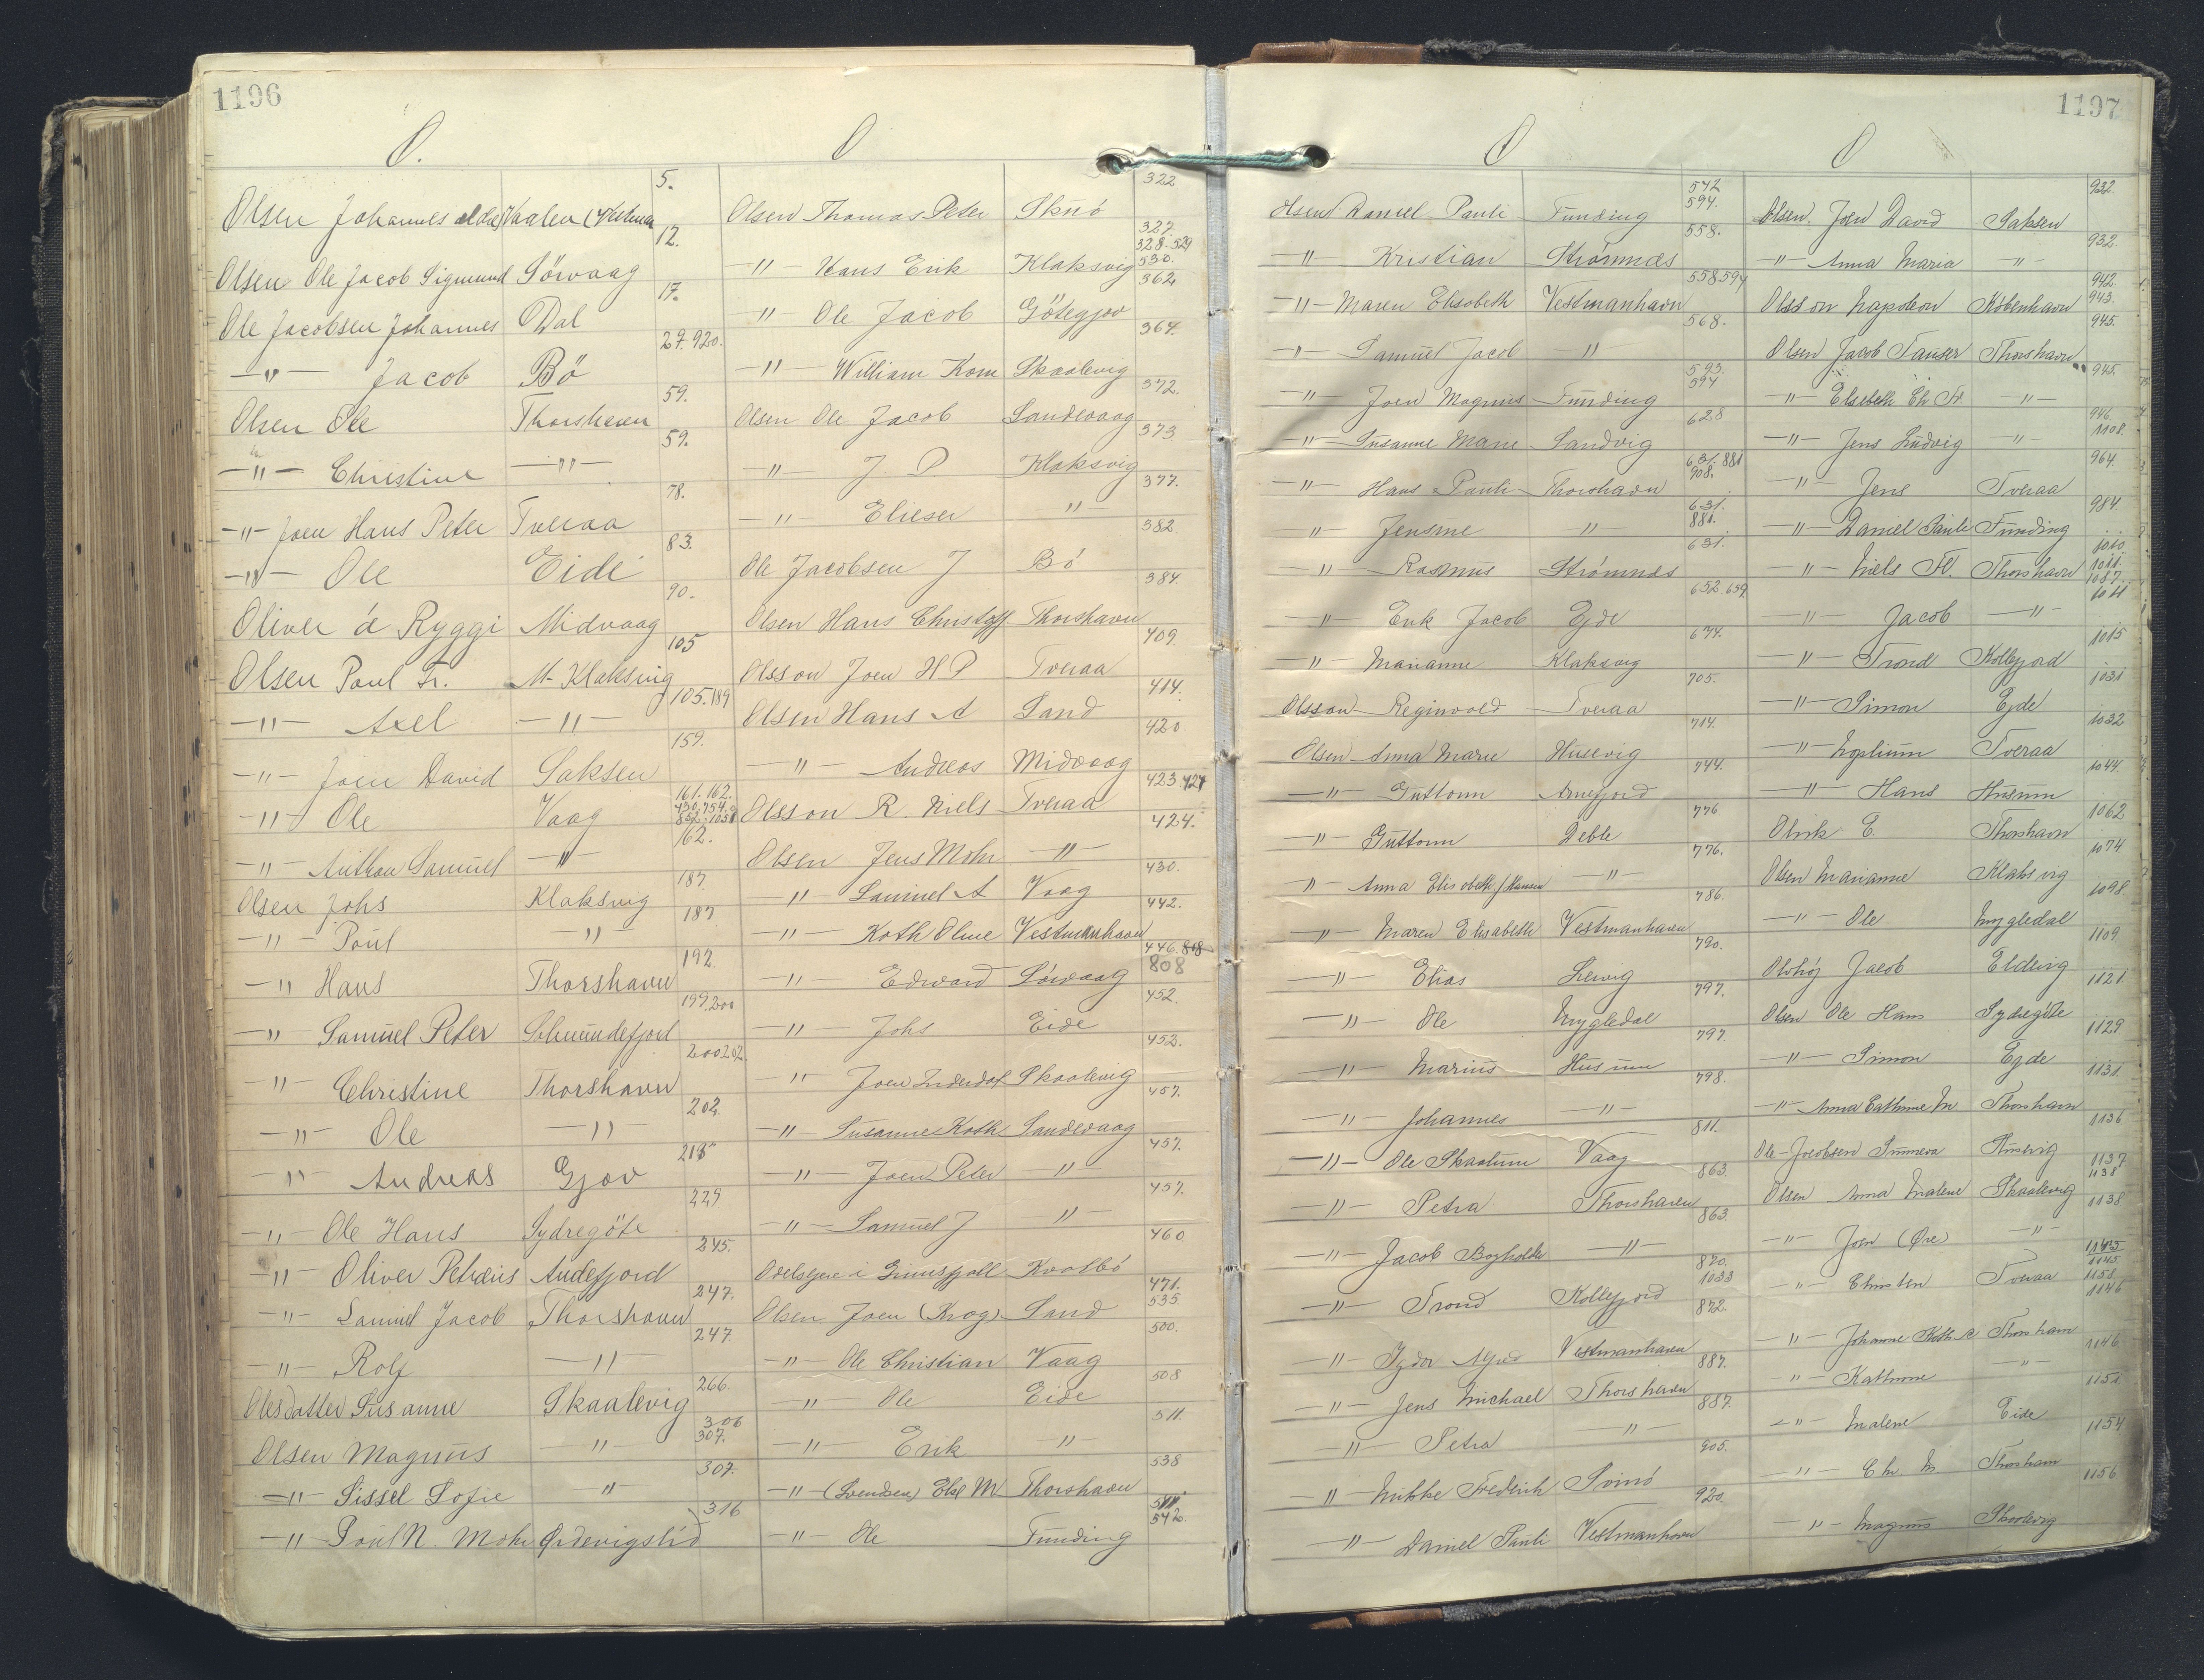 1196
O.
O
5.
Olsen Johannes Vaalen
12.
Olsen Ole Jacob Sigmund Sörvaag
17.
Ole Jacobsen Johannes Dal
27. 920.
-"- Jacob Bö
59.
Olsen Ole Thorshavn
59.
-"- Christine -"-
78.
-"- Joen Hans Peter Tveraa
83.
-"- Ole Eide
90.
Oliver á Ryggi Midvaag
105
Olsen Poul Fr. M-Klaksvig
105. 189
-"- Axel -"-
159.
-"- Joen David Saksen
161. 162.
430. 754.
852. 1058
-"- Ole Vaag
162.
-"- Anthon Samuel -"-
187.
Olsen Johs Klaksvig
187
-"- Poul -"-
192.
-"- Hans Thorshavn
199. 200
-"- Samuel Peter
200 202.
-"- Christine Thorshavn
202.
-"- Ole -"-
218
-"- Andreas Gjov
229
-"- Ole Hans Sydregöte
245.
-"- Oliver Petræus Andefjord
247.
-"- Samuel Jacob Thorshavn
247.
-"- Rolf -"-
266.
Olesdatter Susanne Skaalevig
306
307.
Olsen Magnus -"-
307.
-"- Sissel Sofie "
316
-"- Poul N. Mohr Ördevigslid
322
Olsen Thomas Peter Skuö
327.
328. 529
530.
-"- Hans Erik Klaksvig
362
-"- Ole Jacob Götegjov
364.
-"- William Korn Skaalevig
372.
Olsen Ole Jacob Sandevaag
373
-"- J. P. Klaksvig
377.
-"- Elieser -"-
382
Ole Jacobsen J Bö
384.
Olsen Hans Christoff. Thorshavn
409.
Olsson Joen H P Tveraa
414.
Olsen Hans A Sand
420
-"- Andreas Midvaag
423 424
Olsson R. Niels Tveraa
424.
Olsen Jens Mohr -"-
430.
-"- Samuel A Vaag
442.
-"- Kath Oline Vestmanhavn
446. 818
808
-"- Edward Sörvaag
452.
-"- Johs Eide
452.
-"- Joen Inderdal Skaalevig
457.
-"- Susanne Kath Sandevaag
457.
-"- Joen Peter -"-
457.
-"- Samuel J -"-
460
Odelsejere i Grimsfjall Kvalbö
471.
535.
Olsen Joen (Krog) Sand
500.
-"- Ole Christian Vaag
508
-"- Ole Eide
511.
-"- Erik -"-
538
-"- (Svendsen) Else M Thorshavn
542.
-"- Ole Funding
1197
O
O
542
594.
Olsen Daniel Pauli Funding
558.
-"- Kristian Strömnæs
558 594
-"- Maren Elisabeth Vestmanhavn
568.
-"- Samuel Jacob "
593.
594
-"- Joen Magnus Funding
628
-"- Susanne Marie Sandvig
631. 881
908.
-"- Hans Pauli Thorshavn
631.
881.
-"- Jensine -"-
631.
-"- Rasmus Strömnæs
652 659
-"- Erik Jacob Ejde
674.
-"- Marianne Klaksvig
705.
Olsson Reginvald Tveraa
714.
Olsen Anna Marie Husevig
744.
-"- Guttorm Arnefjord
776
-"- Guttorm Deble
776.
-"- Anna Elisabeth f Hansen -"-
786.
-"- Maren Elisabeth Vestmanhavn
790.
-"- Elias
797.
-"- Ole Mygledal
797.
-"- Marius Husum
798.
-"- Johannes -"-
811.
-"- Ole Skaalum Vaag
863.
-"- Petra Thorshavn
863.
-"- Jacob Bagholdn -"-
870.
1033
-"- Trond Kollefjord
872.
-"- Vestmanhavn
887.
-"- Jens Michael Thorshavn
887.
-"- Petra -"-
905.
-"- Mikke Frederik Svinö
920.
-"- Daniel Pauli Vestmanhavn
932.
Olsen Joen David Saksen
932.
-"- Anna Maria -"-
942.
943.
Olsson Napoleon Köbenhavn
945.
Olsen Jacob Tausen Thorshavn
945.
-"- Elsebeth Chr Fr. -"-
946
1108.
-"- Jens Ludvig -"-
964.
-"- Jens Tveraa
984.
-"- Daniel Pauli Funding
1010
1011.
1087.
-"- Niels Fr. Thorshavn
1011
-"- Jacob -"-
1015
-"- Trond Kollefjord
1031
-"- Simon Ejde
1032
-"- Tveraa
1044.
-"- Hans Husum
1062
Olrik E Thorshavn
1074
Olsen Marianne Klaksvig
1098.
-"- Ole Mygledal
1109
Jacob Eldevig
1121
Olsen Ole Hans Sydregöte
1129
-"- Simon Ejde
1131.
-"- Anna Cathrine M Thorshavn
1136
Ole-Jacobsen Sunneva Husevig
1137
1138
Olsen Anna Malene Skaalevig
1138
-"- Joen (Öre) -"-
1145
1145.
1158.
-"- Christen Tveraa
1146
-"- Johanne Kath Thorshavn
1146
-"- Kathrine -"-
1151
-"- Malene Eide
1154
-"- Chr. M. Thorshavn
1156
-"- Magnus Skaalevig